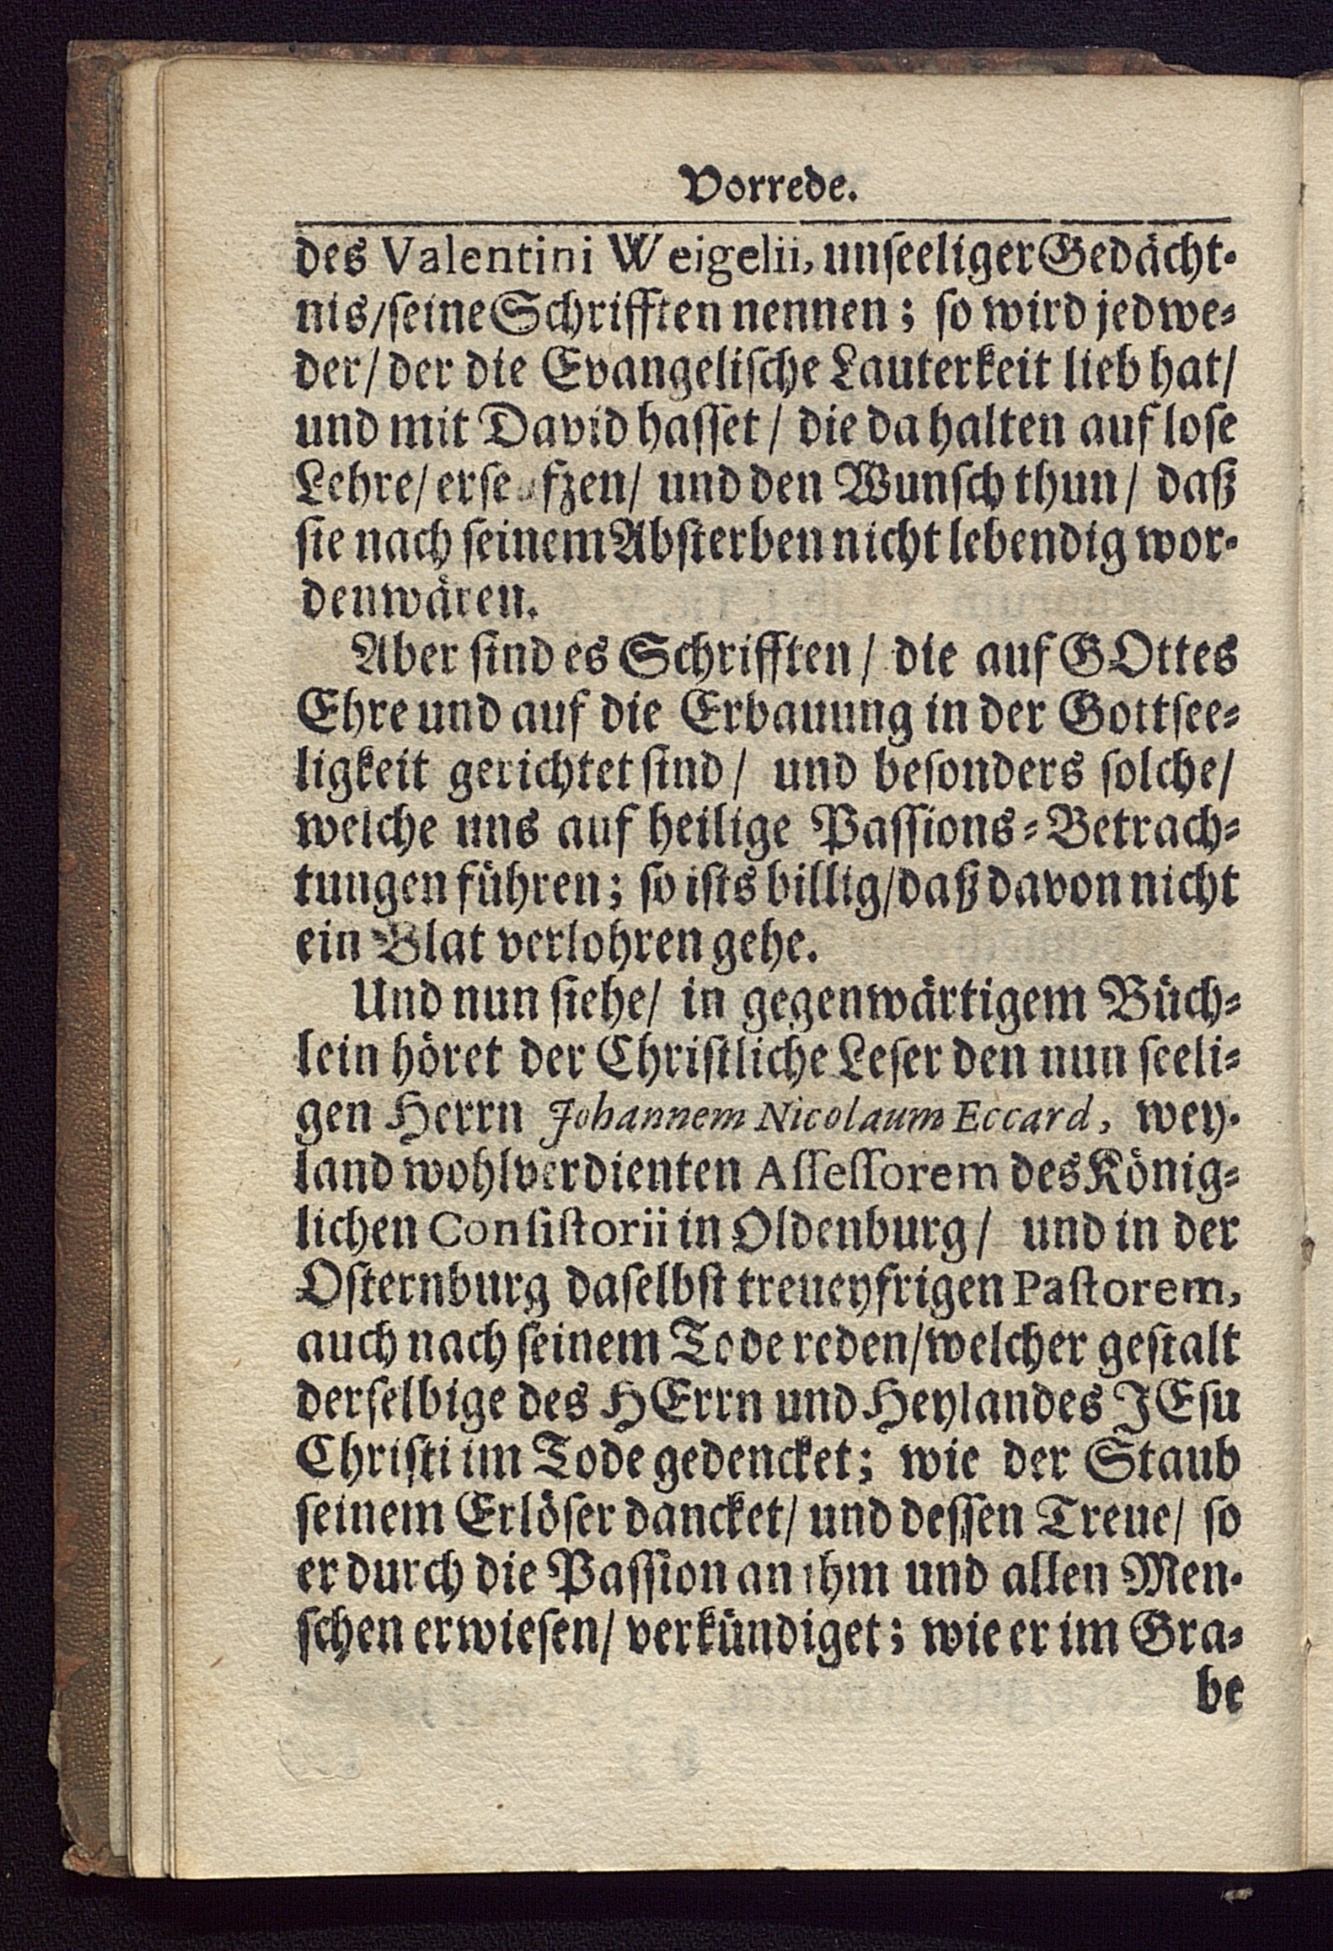 Vorrede.
des Valentini Weigelii, unſeeliger Gedächt-
nis/ſeine Schrifften nennen; ſo wird jedwe-
der/ der die Evangeliſche Lauterkeit lieb hat/
und mit David haſſet / die da halten auf loſe
Lehre/ erſeufzen/ und den Wunſch thun/ daß
ſie nach ſeinem Abſterben nicht lebendig wor-
den wären.
Aber ſind es Schrifften / die auf GOttes
Ehre und auf die Erbauung in der Gottſee-
ligkeit gerichtet ſind/ und beſonders ſolche/
welche uns auf heilige Paſſions-Betrach-
tungen führen; ſo iſts billig/daß davon nicht
ein Blat verlohren gehe.
Und nun ſiehe/ in gegenwärtigem Büch-
lein höret der Chriſtliche Leſer den nun ſeeli-
gen Herrn Johannem Nicolaum Eccard, wey-
land wohlverdienten Aſſeſſorem des König-
lichen Conſiſtorii in Oldenburg/ und in der
Oſternburg daſelbſt treueyfrigen Paſtorem,
auch nach ſeinem Tode reden/welcher geſtalt
derſelbige des HErrn und Heylandes JEſu
Chriſti im Tode gedencket; wie der Staub
ſeinem Erlöſer dancket/ und deſſen Treue/ ſo
er durch die Paſſion an ihm und allen Men-
ſchen erwieſen/ verkündiget; wie er im Gra-
be